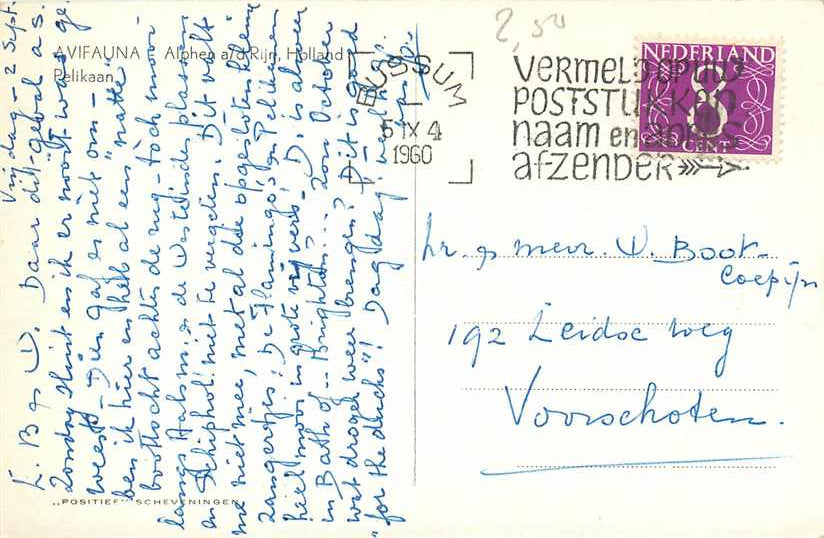 2,50
AVIFAUNA - Alphen a/d Rijn, Holland
Pelikaan
BUSSUM
5 IX 4
1960
VERMELD OP UW
POSTSTUKKEN
naam en adres
afzender
NEDERLAND
8
CENT
Vrijdag - 2 Sept.
L. B g D. Daar dit geval a.s.
zondag sluit en ik er nooit was ge
weest - Dien gaf es niet om -
ben ik hier en heel al een "natte"
boottocht achter de rug - toch mooi
langs Aalsm. & de Westeinder plassen
en Schiphol niet te vergeten. Dit valt
me niet mee, met al die opgesloten kleine
zangertjes, De Flamingo's en Pelikanen
heel mooi in grote vijvers - D. is alweer
in Bath of .. Brighton? ... Zou October
wat droger weer brengen? Dit is good
"for the ducks"! Dag dag
hr. g mevr. D. Boot-
Coepijn
192 Leidse weg
Voorschoten.
"POSITIEF" SCHEVENINGEN